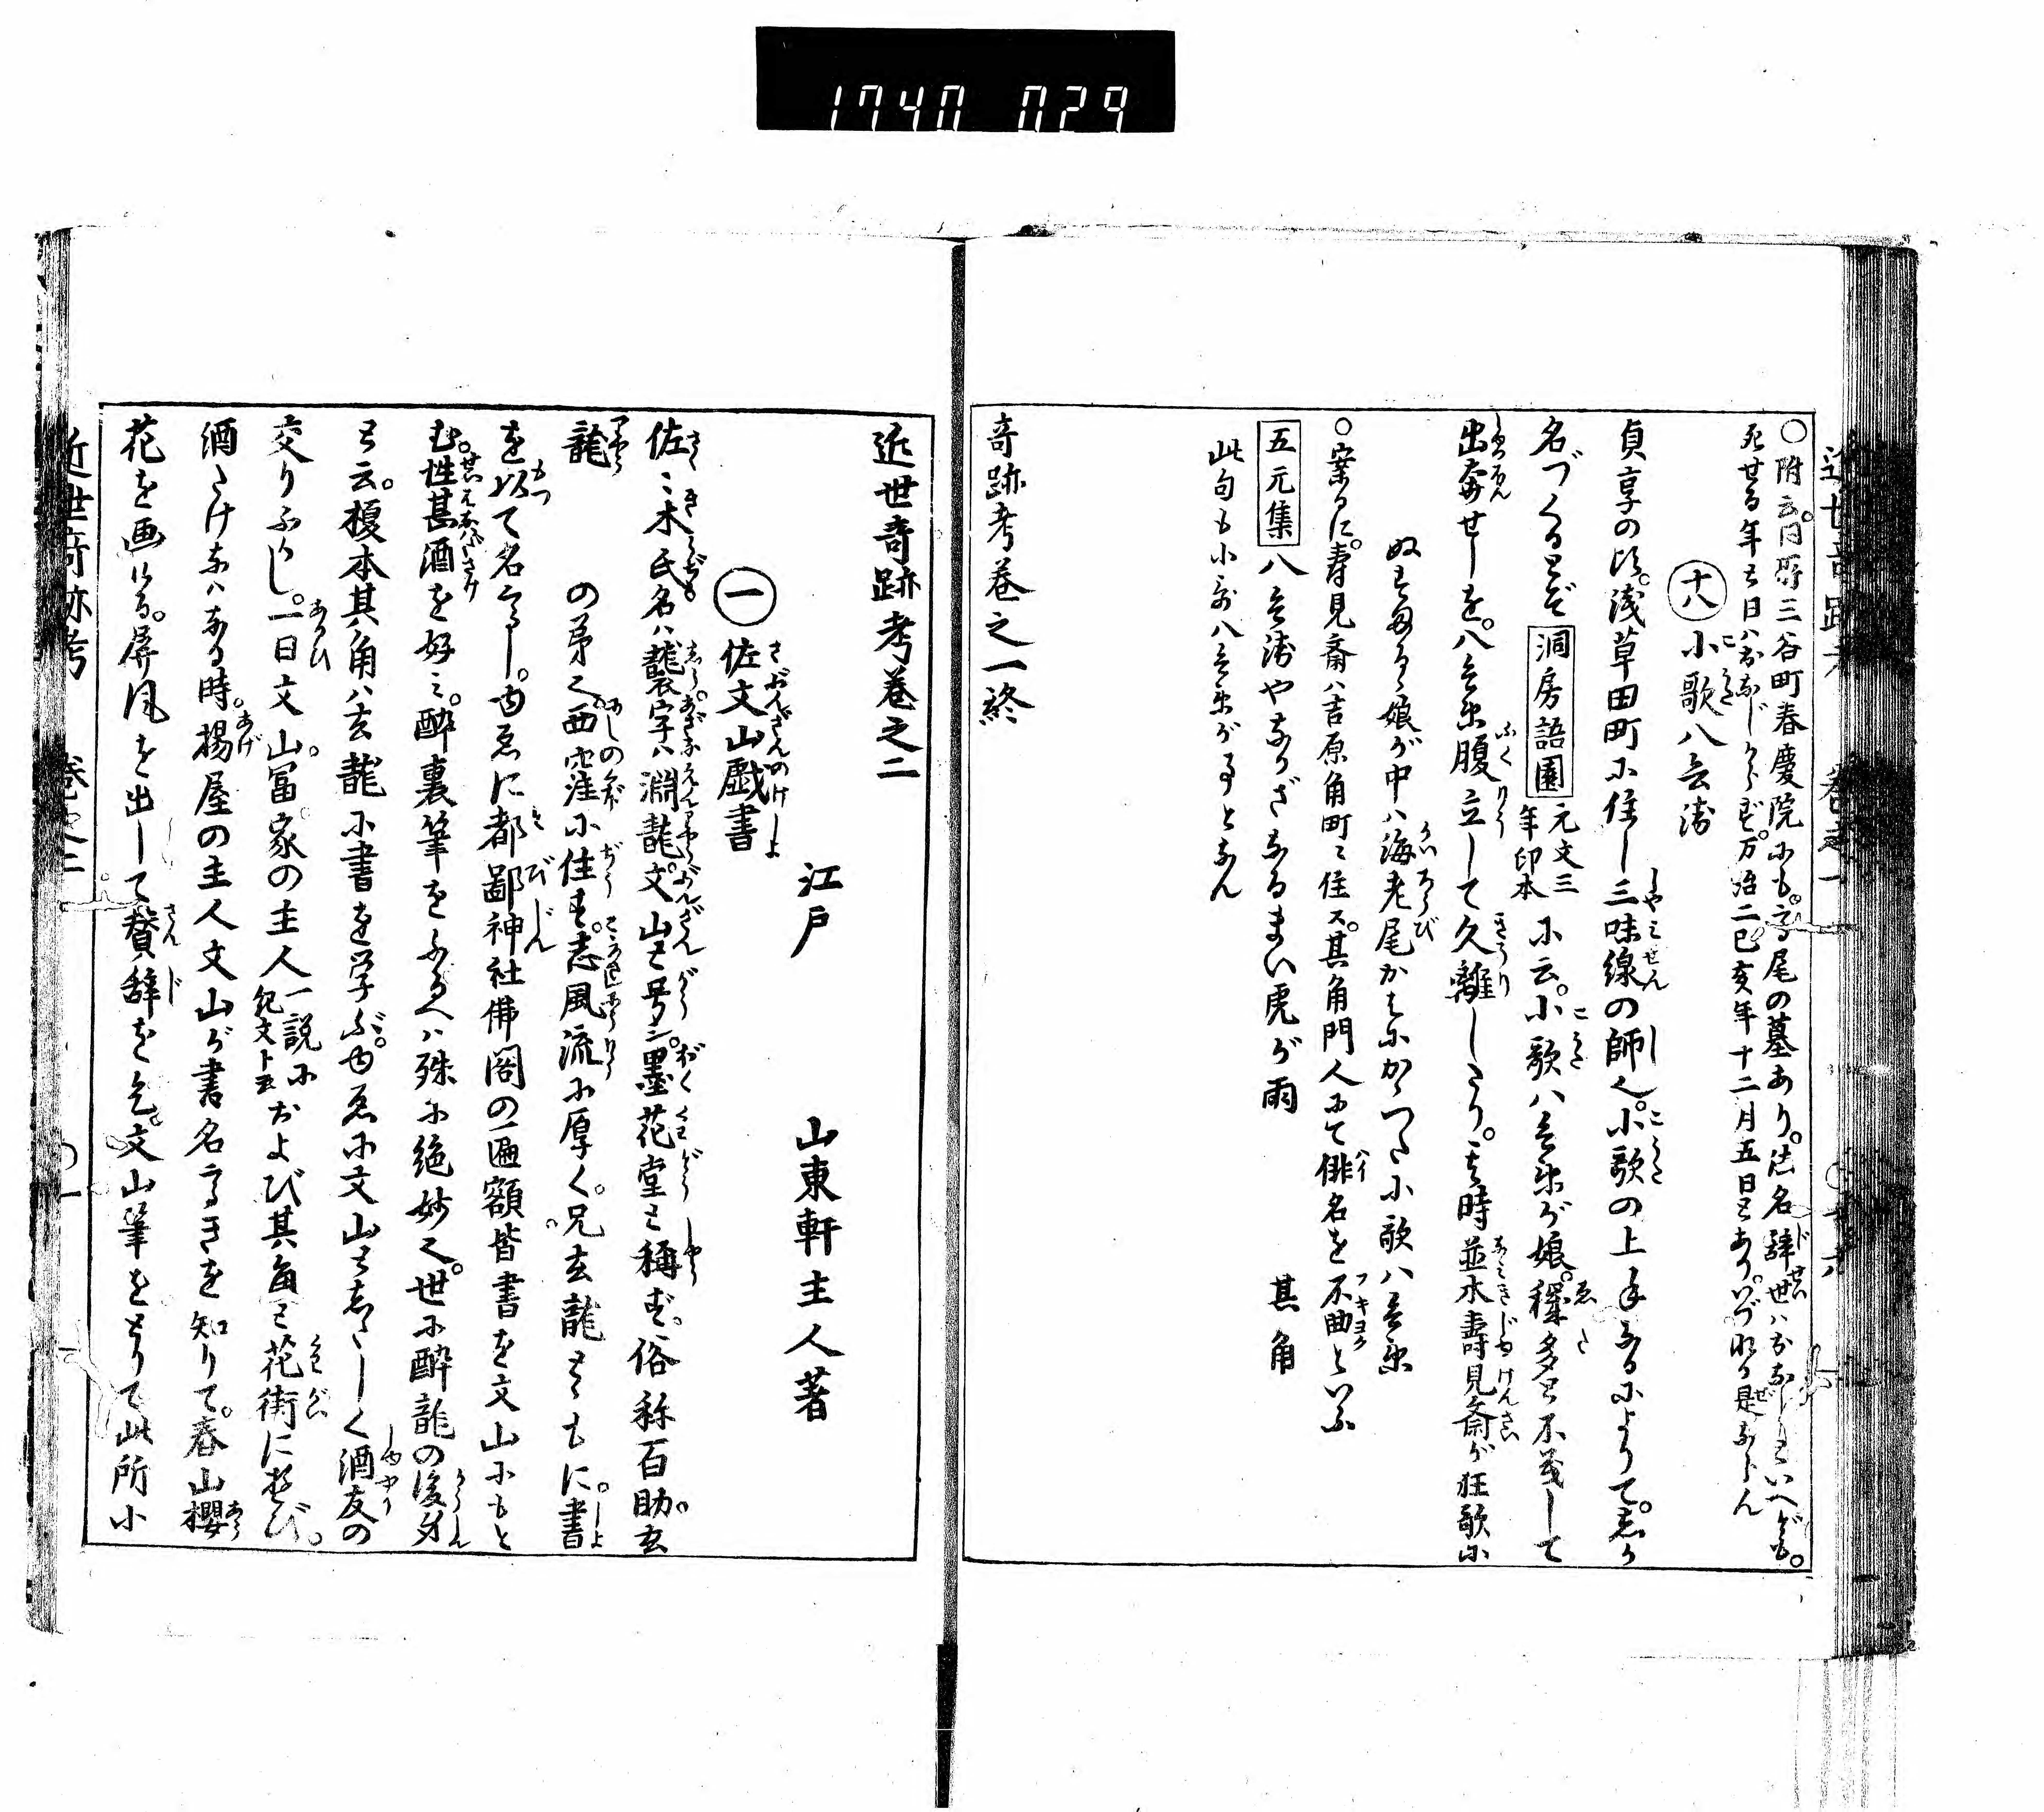 1740 029
○附云。同所三谷町春慶院にも。高尾の墓あり。法名辞世ハおなじといへども。
死せる年月日ハおなじからず。万治二己亥年十二月五日とあり。いづれか是ならん
十八 小歌八兵衛
貞享の比。浅草田町に住し三味線の師也。小歌の上手なるによりて。しか
名づくるとぞ 洞房語園 元文三年印本 に云。小歌八兵衛が娘。穢多と不義して
出奔せしを。八兵衛腹立して久離したり。其時並木寿見斎が狂歌に
ぬす㚑る娘が中ハ海老尾かはにかゝつた小歌八兵衛
○案るに。寿見斎ハ吉原角町ニ住ス。其角門人にて俳名を不曲といふ
五元集 八兵衛やなかざなるまい虎が雨 其角
此句も小歌八兵衛が事となん
奇跡考巻之一終
近世奇跡考巻之二
江戸 山東軒主人著
一 佐文山戯書
佐々木氏名ハ襲字ハ淵龍。文山と号シ。墨花堂と称ず。俗称百助。玄
龍 の弟也。西窪に住す。志風流に厚く。兄玄龍とゝもに。書
を以て名高し。ゆゑに都鄙神社仏閣の匾額皆書を文山にもと
む。性甚酒を好み。酔裏筆をふるへハ殊に絶妙也。世に酔龍の後身
と云。榎本其角ハ玄龍に書を学ぶ。ゆゑに文山としたしく酒友の
交りふかし。一日文山。冨家の主人 一説に紀文ト云 および其角と花街に遊び。
酒たけなハなる時。揚屋の主人文山が書名高きを知りて。春山桜
花を画ける。屏風を出して賛辞を乞。文山筆をとりて此所小
近世奇跡考 巻之二 ○一